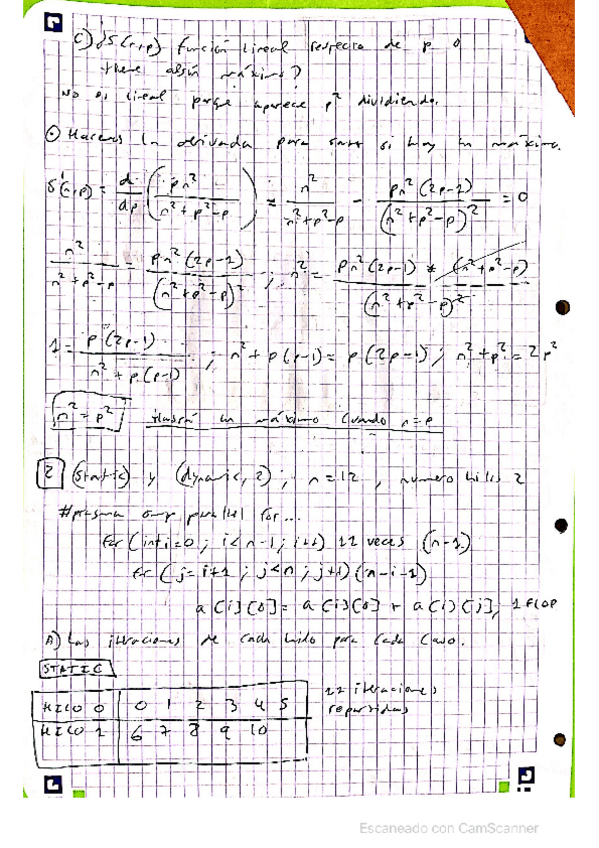 c) ¿S(n,p) función lineal respecto de p o
tiene algún máximo?
No es lineal porque aparece p² dividiendo.
Hacemos la derivada para saber si hay un máximo.
S'(n,p) = d/dp (pn²/(n²+p²-p)) = n²/(n²+p²-p) - pn²(2p-1)/(n²+p²-p)² = 0
n²/(n²+p²-p) = pn²(2p-1)/(n²+p²-p)² ; n² = pn²(2p-1) * (n²+p²-p)/(n²+p²-p)²
1 = p(2p-1)/(n²+p(p-1)) ; n²+p(p-1) = p(2p-1) ; n²+p² = 2p²
n² = p² Habrá un máximo cuando n=p
2 (static) y (dynamic, 2) ; n=12 , numero hilos 2
#pragma omp parallel for...
for (int i=0 ; i<n-1 ; i++) 11 veces (n-1)
for (j=i+1 ; j<n ; j++) (n-i-1)
a[i][0] = a[i][0] + a[i][j]; 1 FLOP
A) Las iteraciones de cada hilo para cada caso.
STATIC
HILO 0 0 1 2 3 4 5 11 iteraciones
HILO 1 6 7 8 9 10 repartidas
Escaneado con CamScanner